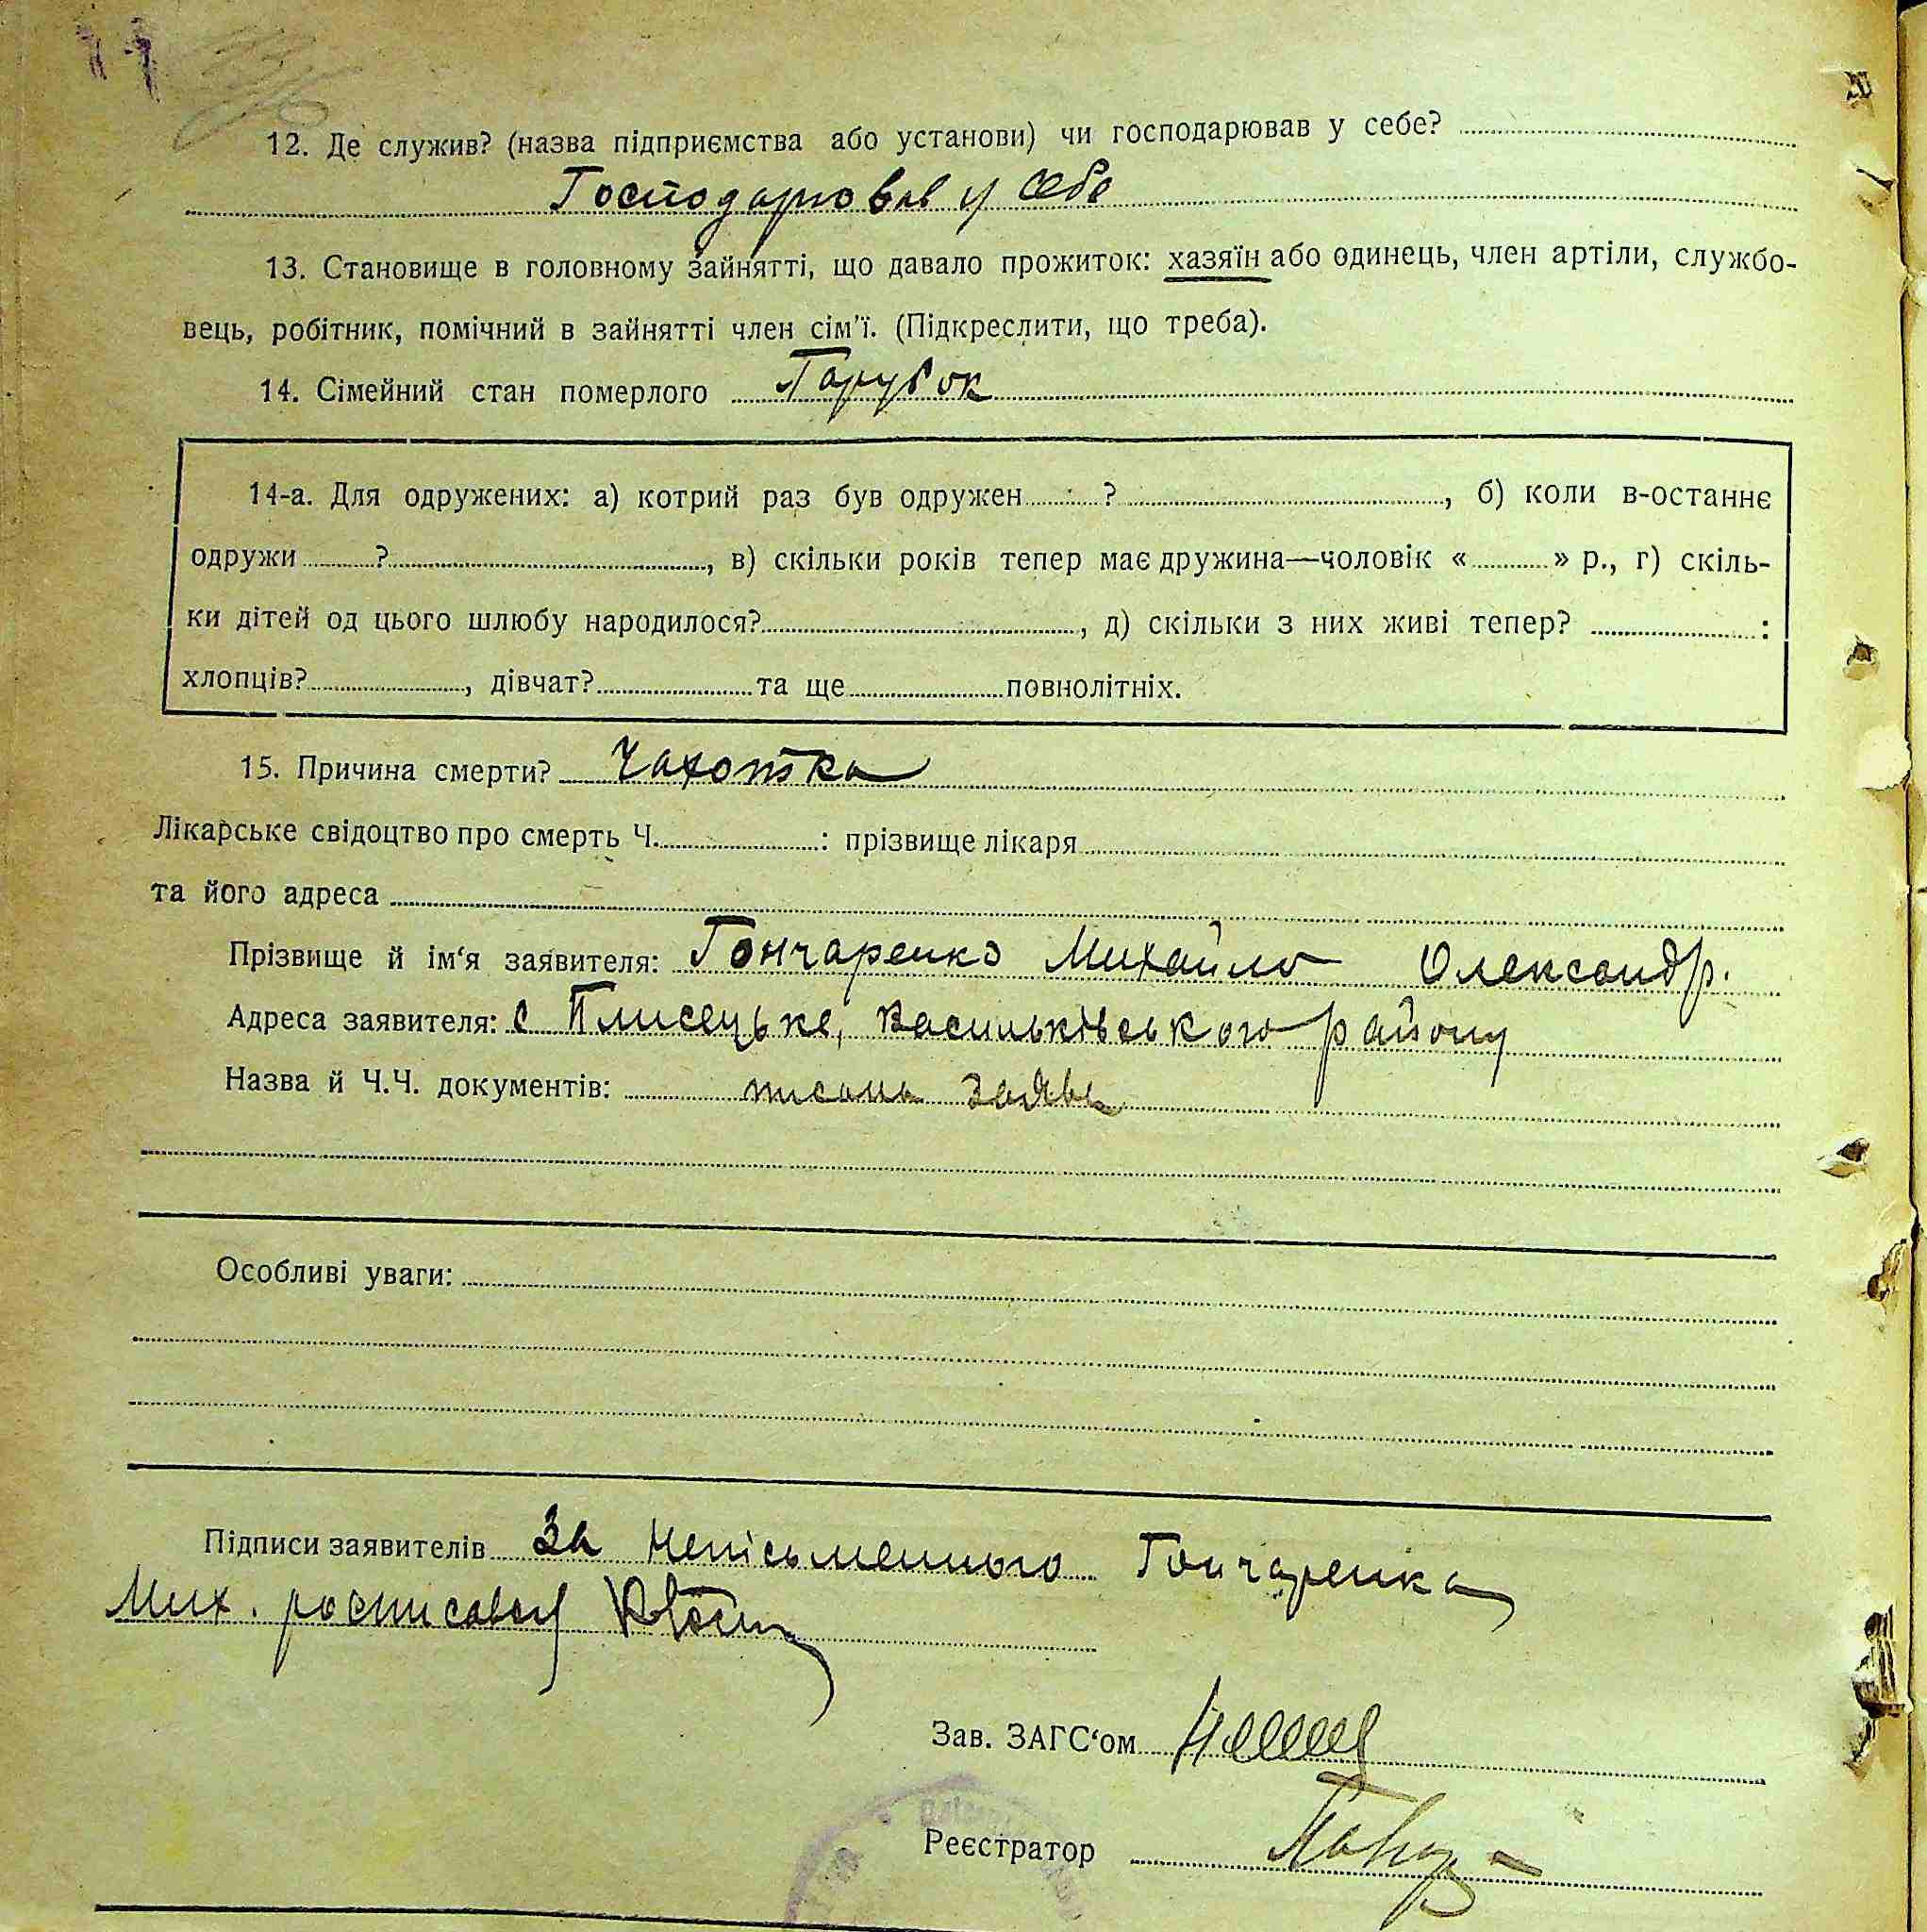 12. Де служив? (назва підприємства або установи) чи господарював у себе?
Господарював у себе
13. Становище в головному зайнятті, що давало прожиток: хазяїн або одинець, член артіли, службо-
вець, робітник, помічний в зайнятті член сім'ї. (Підкреслити, що треба).
14. Сімейний стан померлого Парубок
14-а. Для одружених: а) котрий раз був одружен ? , б) коли в-останнє
одружи ? , в) скільки років тепер має дружина—чоловік « » р., г) скіль-
ки дітей од цього шлюбу народилося? , д) скільки з них живі тепер? :
хлопців? , дівчат? та ще повнолітніх.
15. Причина смерти? Чахотка
Лікарське свідоцтво про смерть Ч. : прізвище лікаря
та його адреса
Прізвище й ім'я заявителя: Гончаренко Михайло Олександр.
Адреса заявителя: с Плисецьке, Васильківського району
Назва й Ч.Ч. документів: заява
Особливі уваги:
Підписи заявителів За непісьменного Гончаренка
Мих. росписався
Зав. ЗАГС'ом
Реєстратор